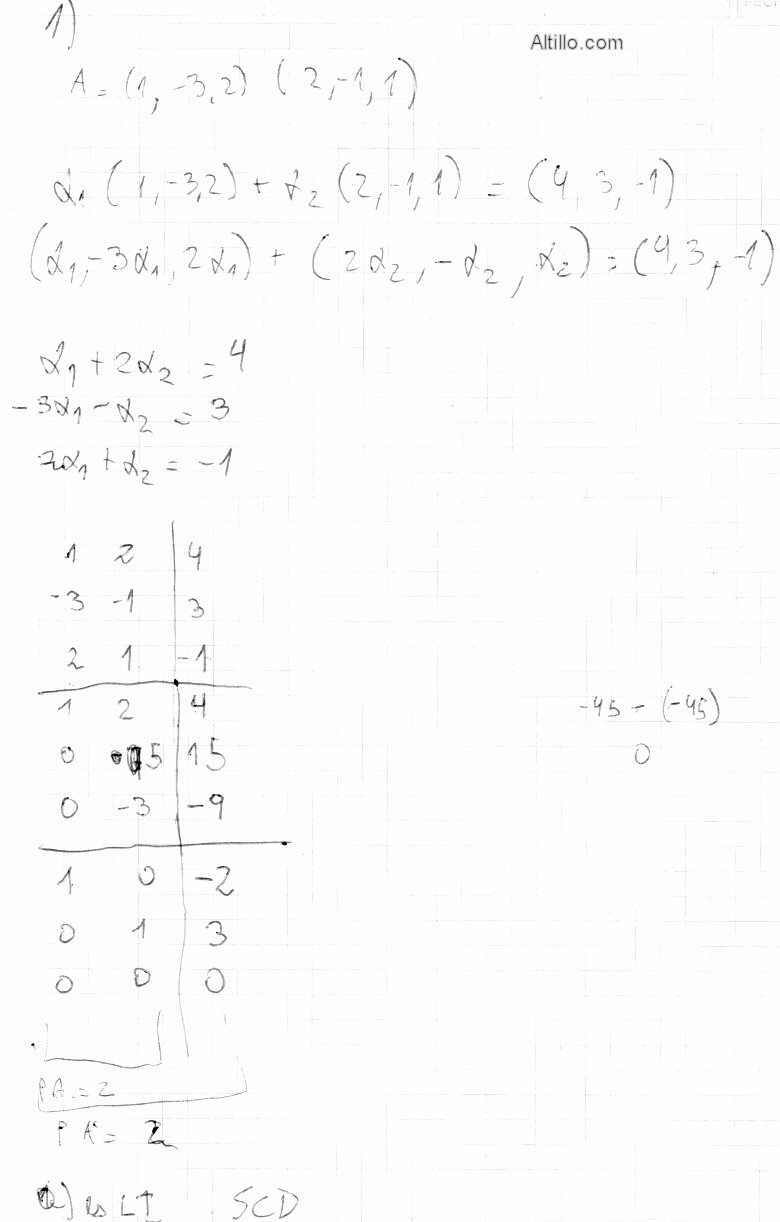 1)
Altillo.com
A = (1, -3, 2) (2, -1, 1)
α1 (1, -3, 2) + α2 (2, -1, 1) = (4, 3, -1)
(α1, -3α1, 2α1) + (2α2, -α2, α2) = (4, 3, -1)
α1 + 2α2 = 4
-3α1 - α2 = 3
2α1 + α2 = -1
1 2 | 4
-3 -1 | 3
2 1 | -1
1 2 | 4
-45 - (-45)
0 5 | 15
0
0 -3 | -9
1 0 | -2
0 1 | 3
0 0 | 0
ρA = 2
ρA' = 2
a) es LI SCD